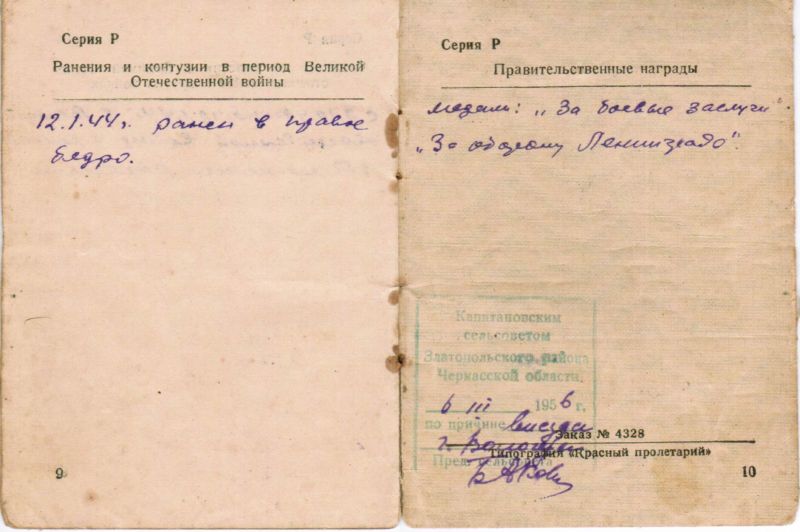 Серия Р
Ранения и контузии в период Великой
Отечественной войны
12.1.44г. ранен в правое
бедро.
9
Серия Р
Правительственные награды
медали: „За боевые заслуги"
„За оборону Ленинграда".
Капитановским
сельсоветом
Златопольского района
Черкасской области
6 III 1956 г.
по причине выезда
г.
Пред. сельсовета
Заказ № 4328
Типография «Красный пролетарий»
10